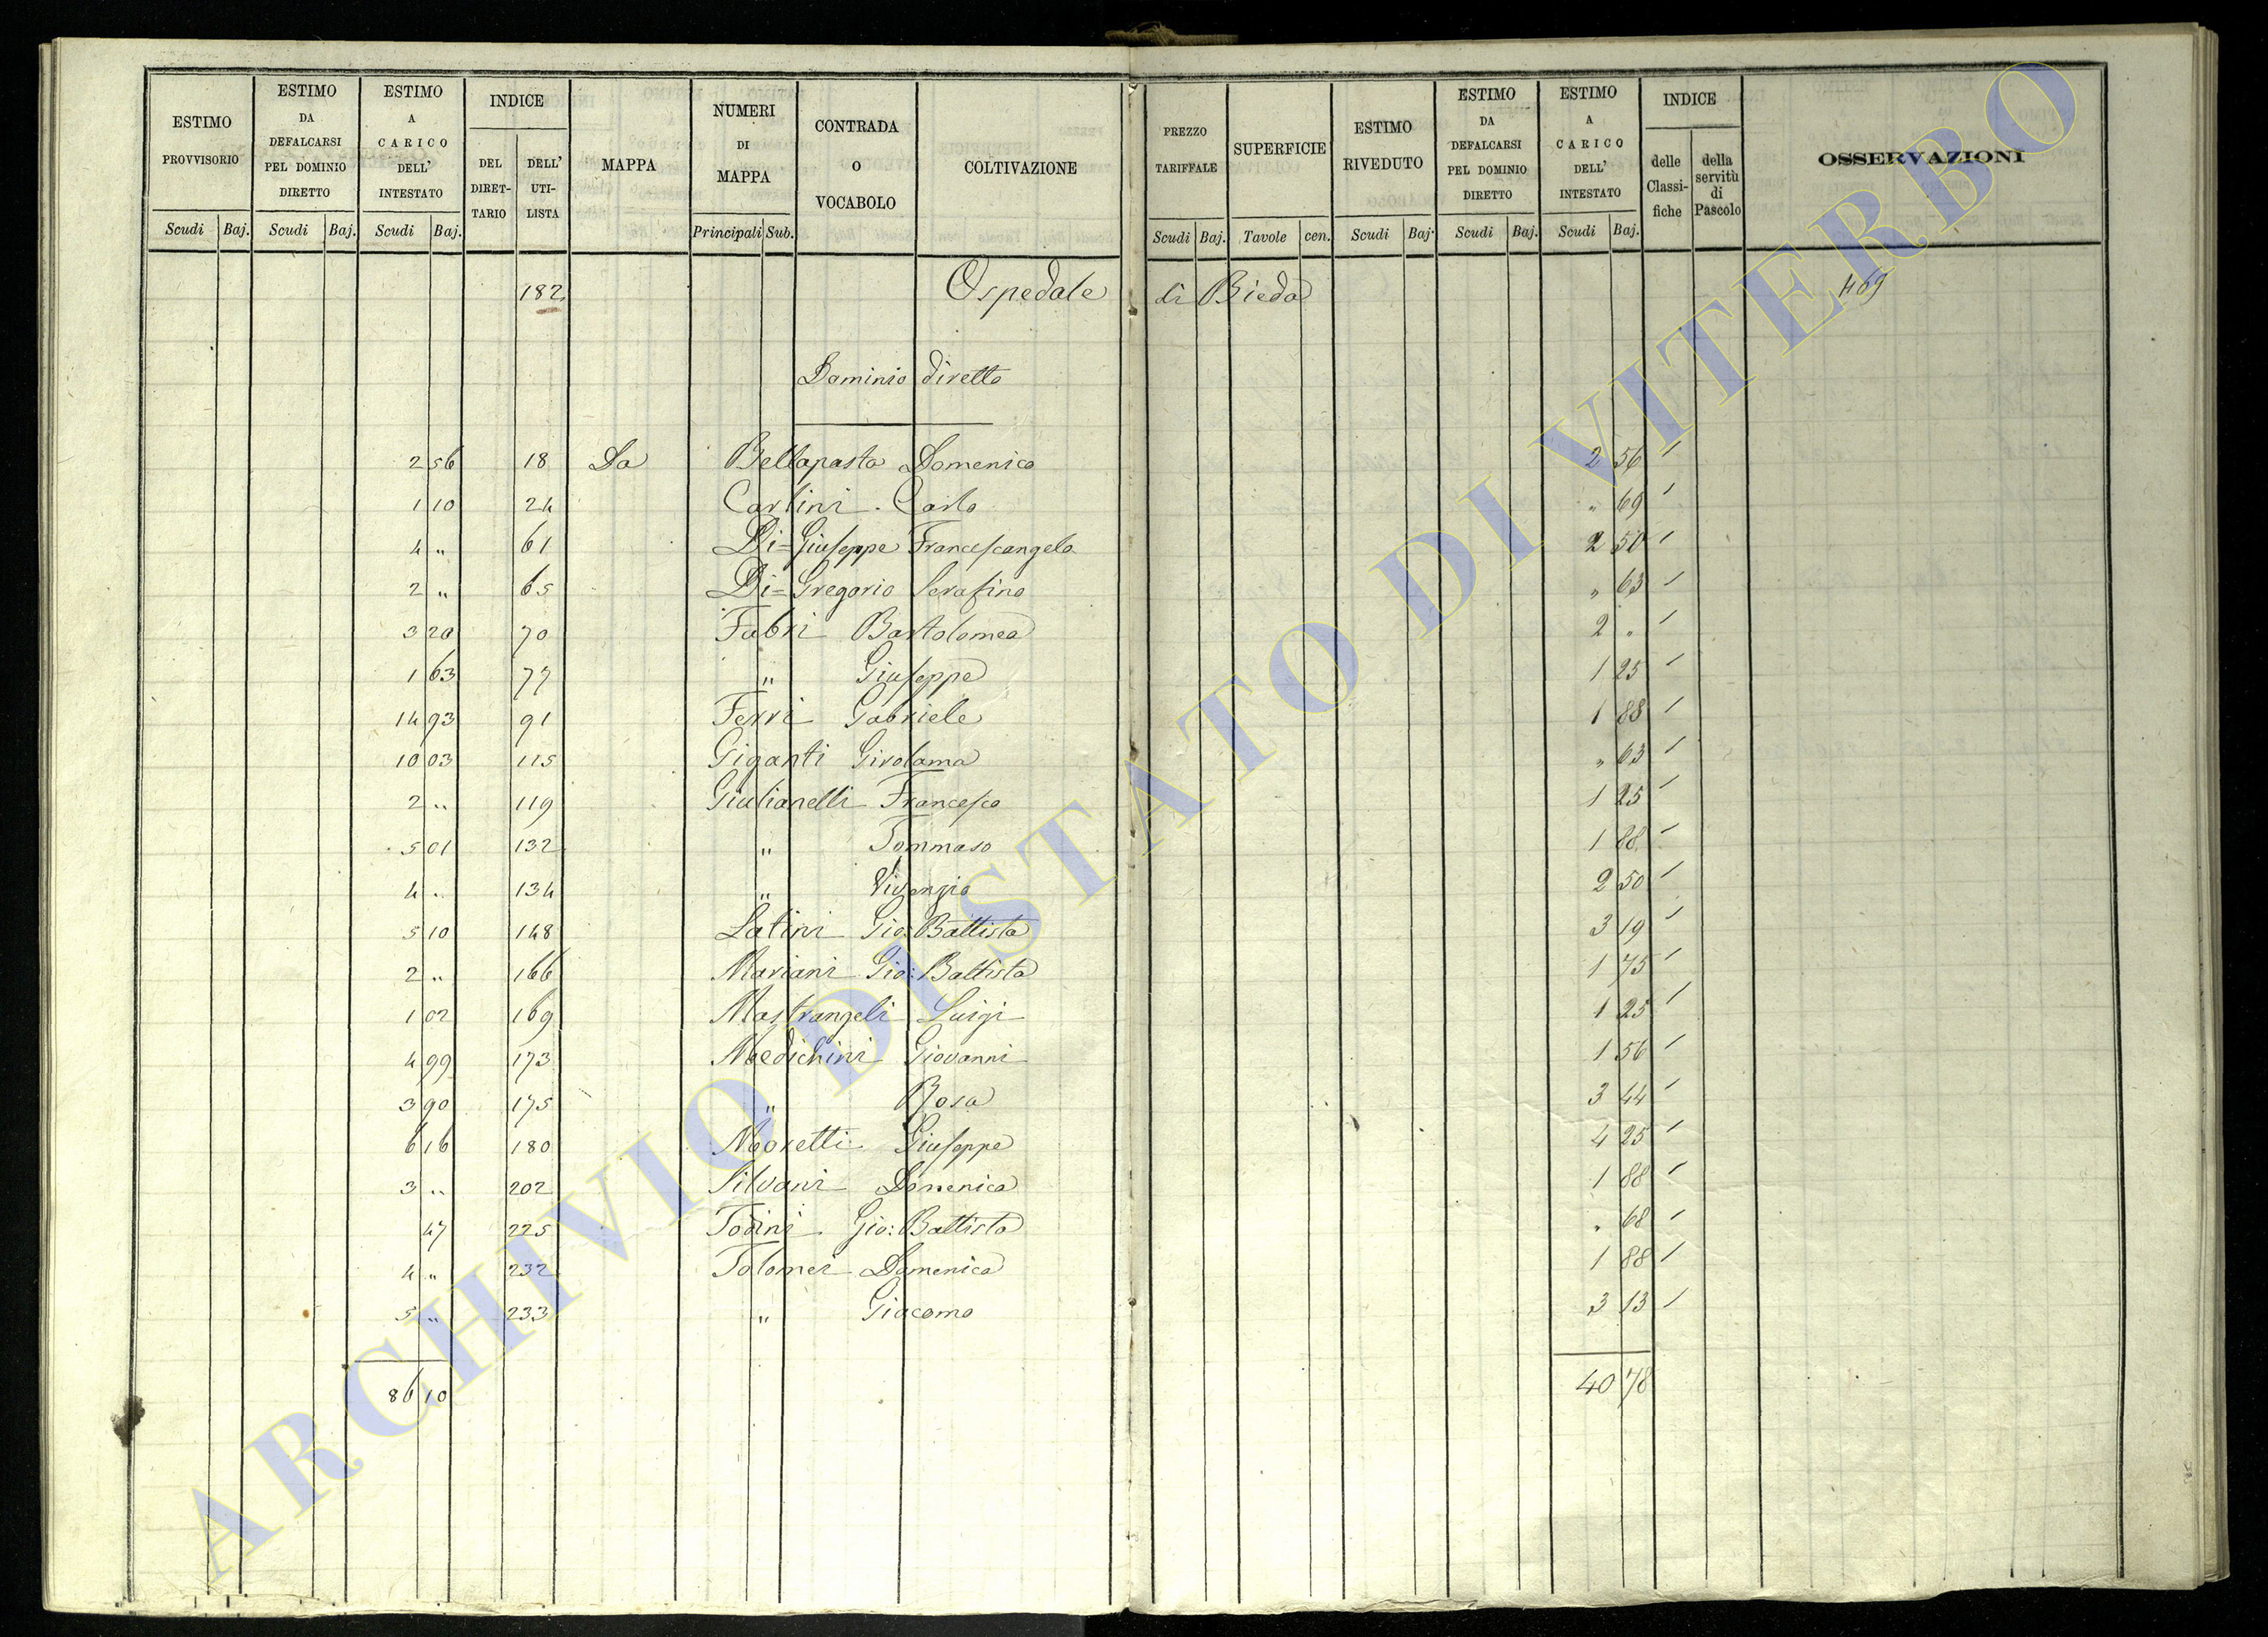 ESTIMO PROVVISORIO Scudi Baj. | ESTIMO DA DEFALCARSI PEL DOMINIO DIRETTO Scudi Baj. | ESTIMO A CARICO DELL' INTESTATO Scudi Baj. | INDICE DEL DIRETTARIO DELL' UTILISTA | MAPPA | NUMERI DI MAPPA Principali Sub. | CONTRADA O VOCABOLO | COLTIVAZIONE | PREZZO TARIFFALE Scudi Baj. | SUPERFICIE Tavole cen. | ESTIMO RIVEDUTO Scudi Baj. | ESTIMO DA DEFALCARSI PEL DOMINIO DIRETTO Scudi Baj. | ESTIMO A CARICO DELL' INTESTATO Scudi Baj. | INDICE delle Classifiche della servitù di Pascolo | OSSERVAZIONI
182 Ospedale di Bieda 469
Dominio diretto
2 56 18 Da Bellapasta Domenico 2 56
1 10 24 Carlini Carlo " 69
4 " 61 Di=Giuseppe Francescangelo 2 50
2 " 65 Di=Gregorio Serafino " 63
3 20 70 Fabri Bartolomeo 2 "
1 63 77 " Giuseppe 1 25
14 93 91 Ferri Gabriele 1 88
10 03 115 Giganti Girolama " 63
2 " 119 Giulianelli Francesco 1 25
5 01 132 " Tommaso 1 88
4 " 134 " Vivenzio 2 50
5 10 148 Latini Gio: Battista 3 19
2 " 166 Mariani Gio: Battista 1 75
1 02 169 Mastrangeli Luigi 1 25
4 99 173 Medichini Giovanni 1 56
3 90 175 " Rosa 3 44
6 16 180 Moretti Giuseppe 4 25
3 " 202 Silvani Domenica 1 88
47 225 Todini Gio: Battista " 68
4 " 232 Tolomei Domenico 1 88
5 " 233 " Giacomo 3 13
86 10 40 78
ARCHIVIO DI STATO DI VITERBO